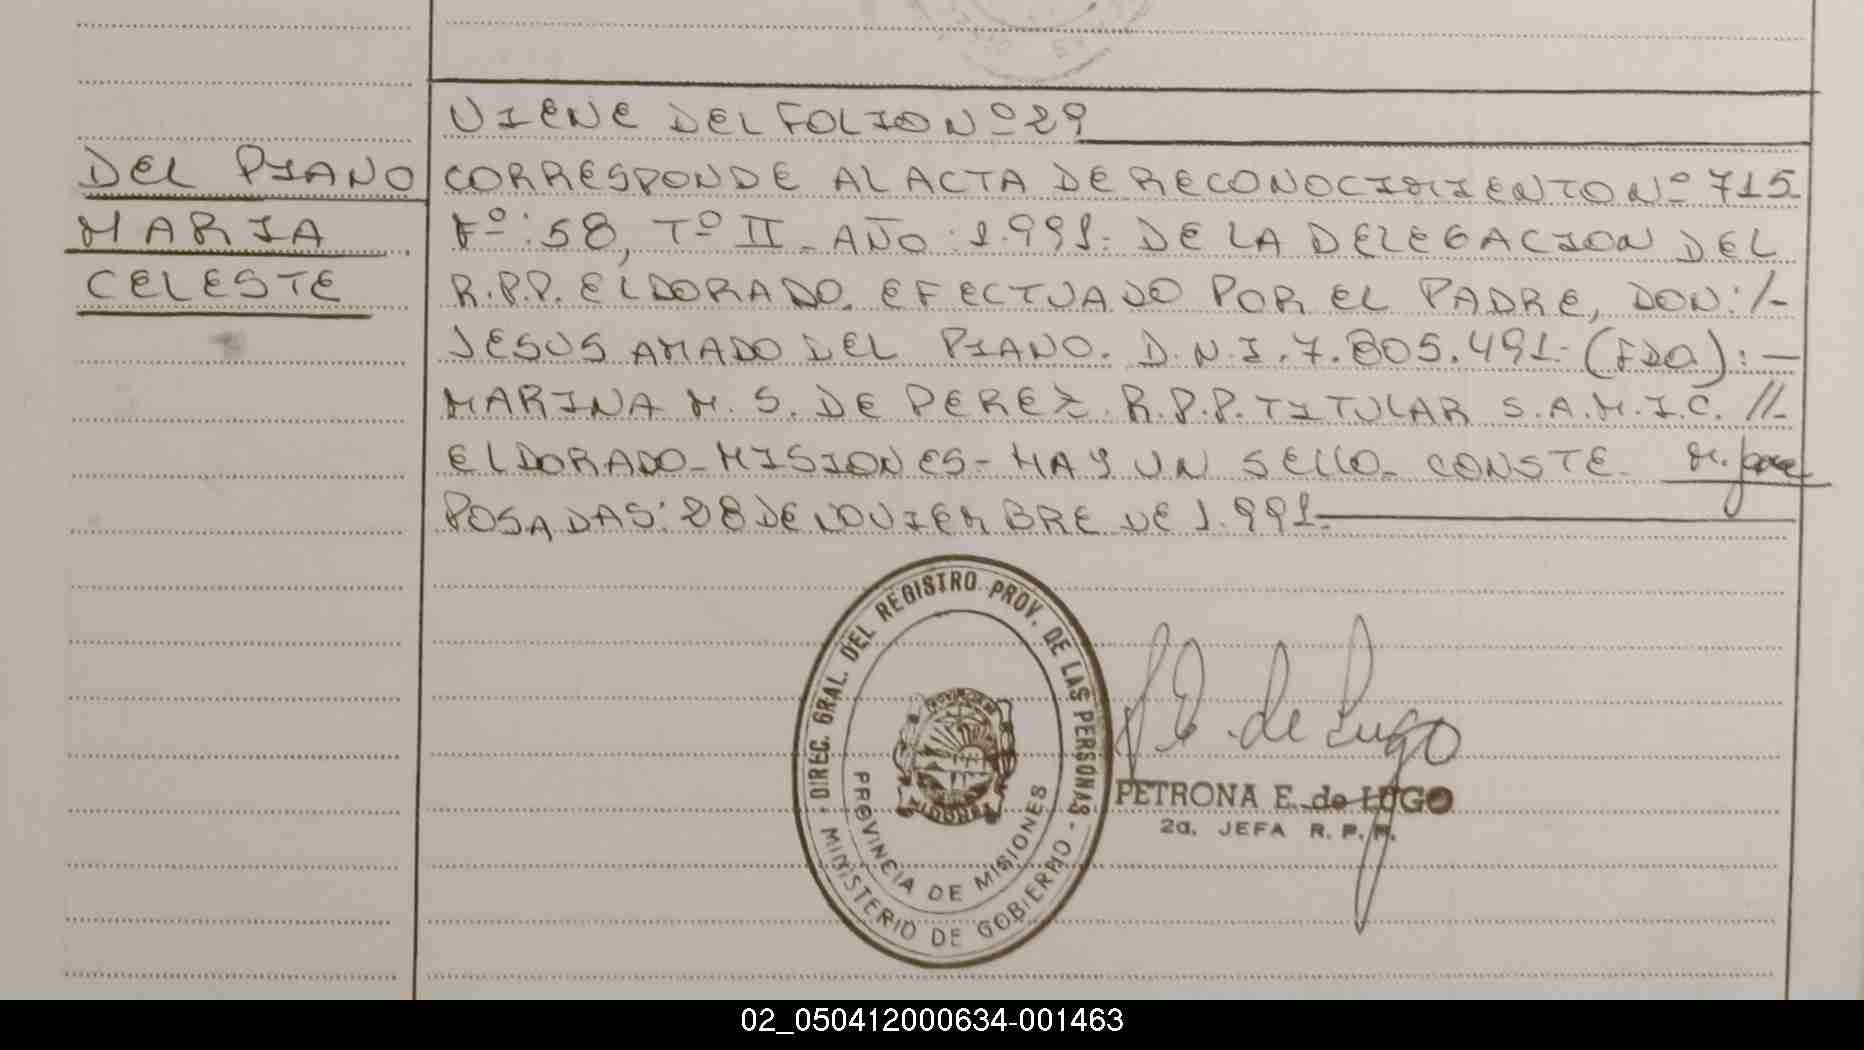 VIENE DEL FOLIO Nº 29
DEL PIANO
MARIA
CELESTE
CORRESPONDE AL ACTA DE RECONOCIMIENTO Nº 715
Fº: 58, Tº II - AÑO: 1.991- DE LA DELEGACION DEL
R.P.P. ELDORADO. EFECTUADO POR EL PADRE, DON:/-
JESUS AMADO DEL PIANO. D.N.I. 7.805.491- (FDO):-
MARINA M. S. DE PEREZ. R.P.P. TITULAR S.A.M.I.C. //-
ELDORADO-MISIONES- HAY UN SELLO- CONSTE-
POSADAS: 28 DE NOVIEMBRE DE 1.991.
DIREC. GRAL. DEL REGISTRO PROV. DE LAS PERSONAS -
MINISTERIO DE GOBIERNO
PROVINCIA DE MISIONES
P E de Lugo
PETRONA E. de LUGO
2a. JEFA R. P. P.
02_050412000634-001463